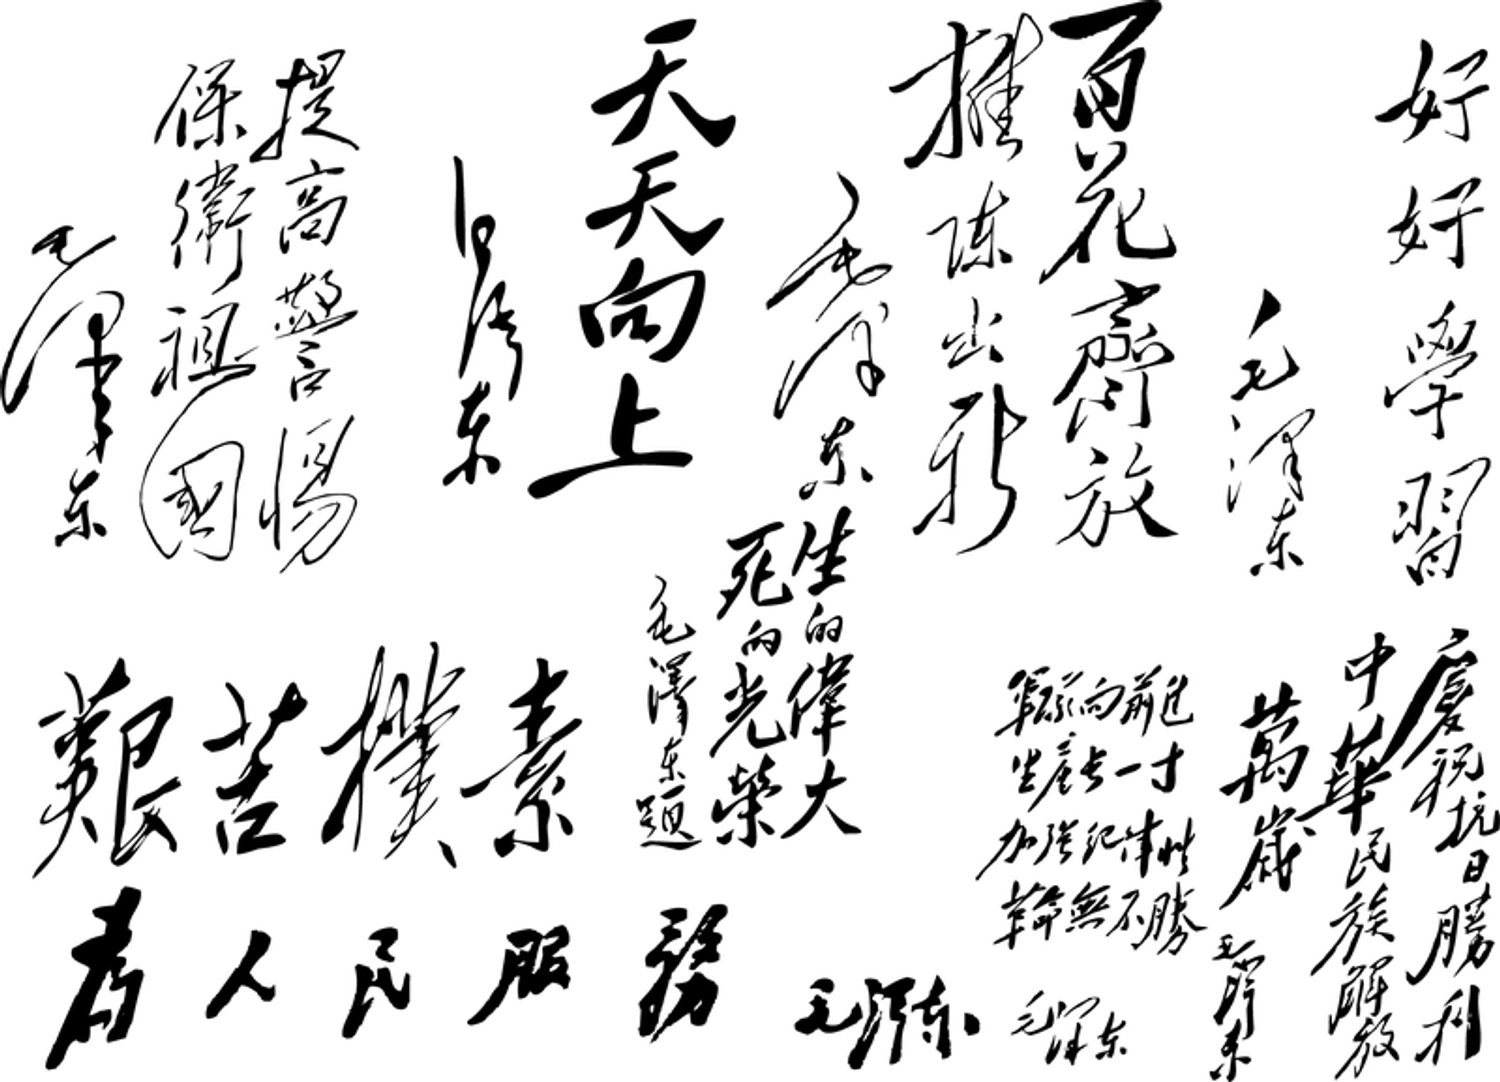 好好學習
毛澤東
百花齊放
推陳出新
毛澤東
天天向上
毛澤東
提高警惕
保衛祖國
毛澤東
生的偉大
死的光榮
毛澤東題
艱苦樸素
慶祝抗日勝利
中華民族解放
萬歲
毛澤東
軍隊向前進
生產長一寸
加強紀律性
革命無不勝
毛澤東
為人民服務
毛澤東